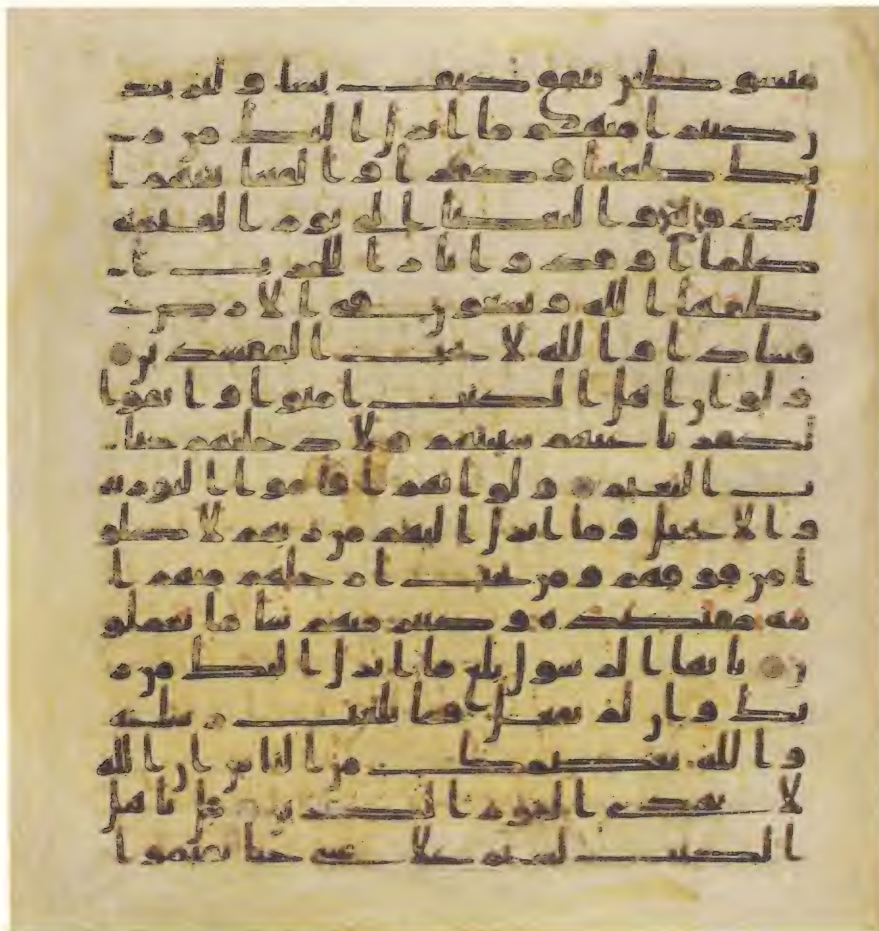 مبسوطتن ينفق كيف يشا وليزيد
ن كثيرا منهم ما انزل اليك من ر
بك طغينا وكفرا والقينا بينهم ا
لعدوة والبغضا الى يوم القيمة
كلما اوقدوا نارا للحرب ا
طفاها الله ويسعون في الارض
فسادا والله لا يحب المفسدين
ولو ان اهل الكتب امنوا واتقوا
لكفرنا عنهم سيتهم ولادخلنهم جنا
ت النعيم ولو انهم اقاموا التورية
والانجيل وما انزل اليهم من ربهم لاكلو
ا من فوقهم ومن تحت ارجلهم منهم ا
مة مقتصدة وكثير منهم سا ما يعملو
ن يايها الرسول بلغ ما انزل اليك من ر
بك وان لم تفعل فما بلغت رسلته
والله يعصمك من الناس ان الله
لا يهدي القوم الكفرين قل ياهل
الكتب لستم على شي حتى تقيموا